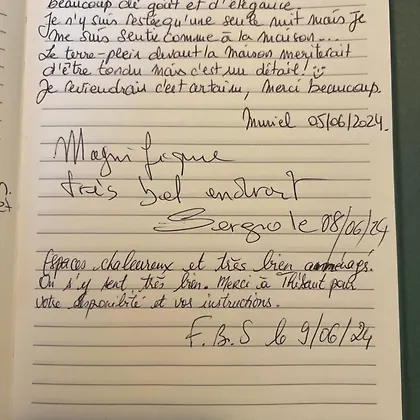 beaucoup de goût et d'élégance.
Je n'y suis restée qu'une seule nuit mais je
me suis sentie comme à la maison...
Le terre-plein devant la maison meriterait
d'être tondu mais c'est un détail! 
Je reviendrais c'est certain, merci beaucoup.
Muriel 05/06/2024.
Magnifique
très bel endroit
Sergio le 08/06/24
Espaces chaleureux et très bien aménagés.
On s'y sent très bien. Merci à Thibaut pour
votre disponibilité et vos instructions.
F.B.S le 9/06/24